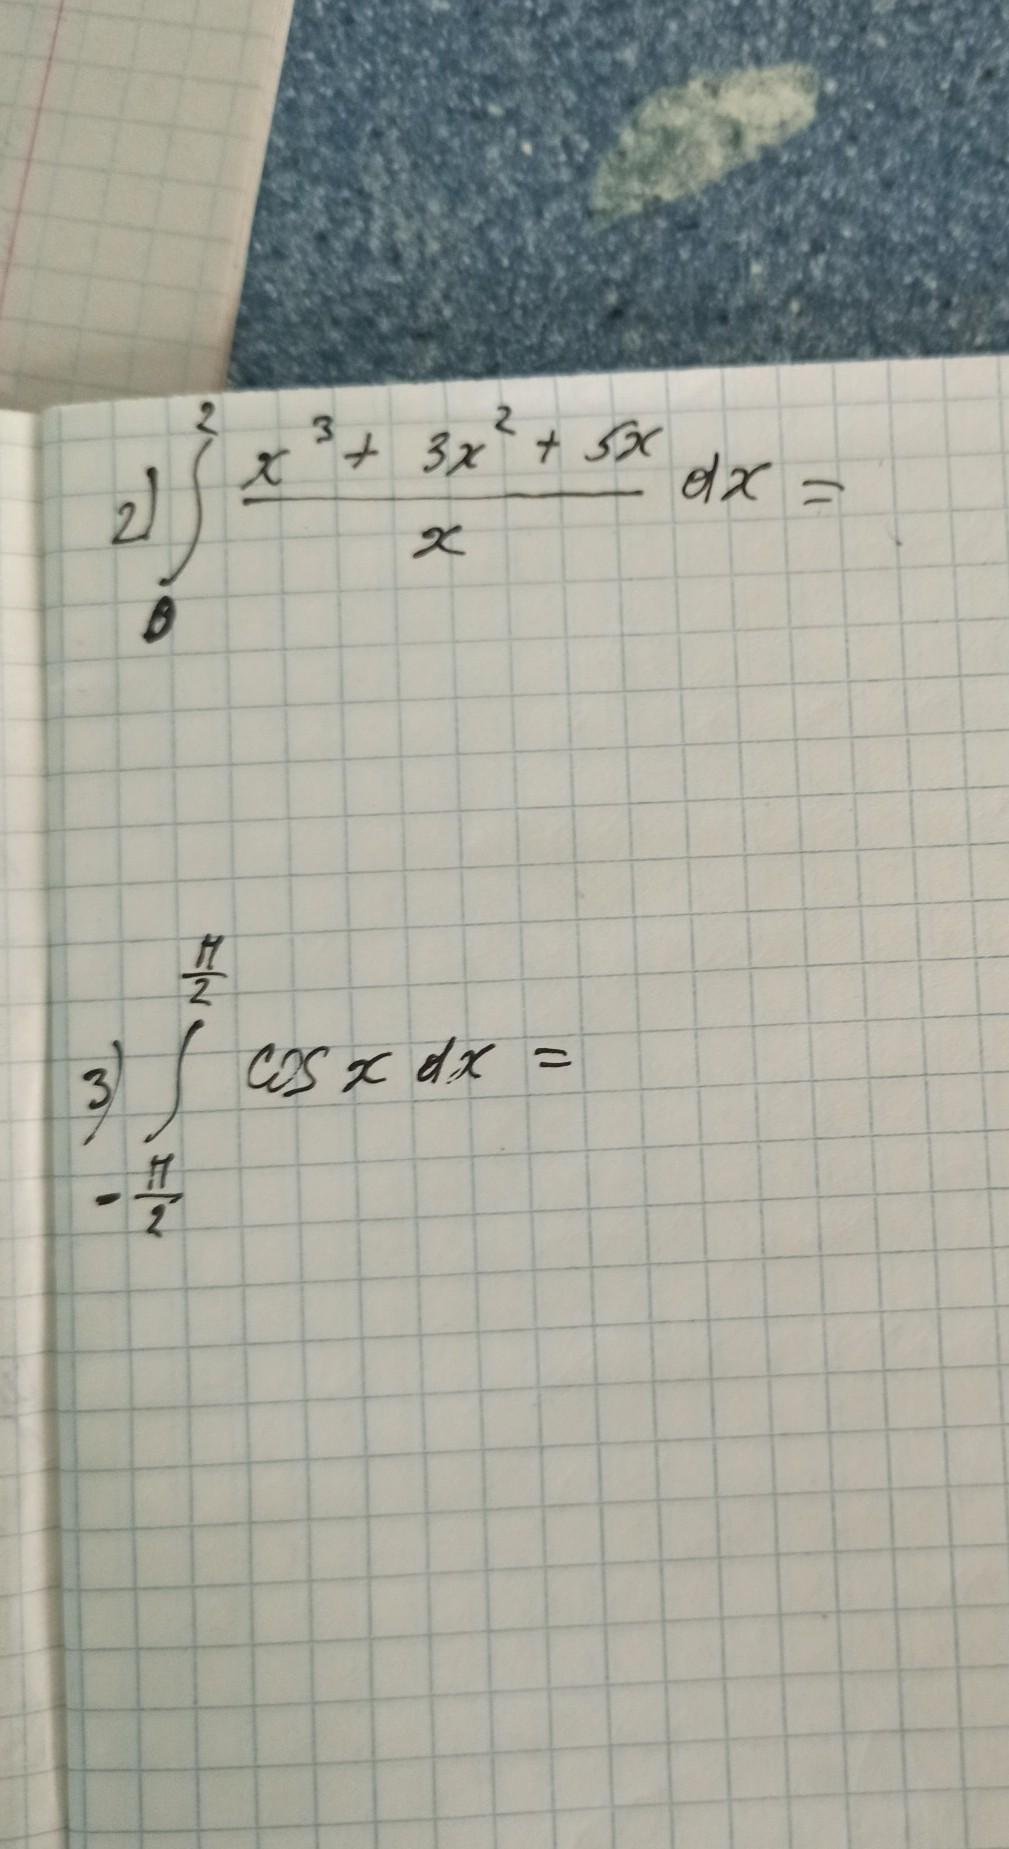 2) ∫₀² (x³ + 3x² + 5x)/x dx =
3) ∫_{-π/2}^{π/2} cos x dx =